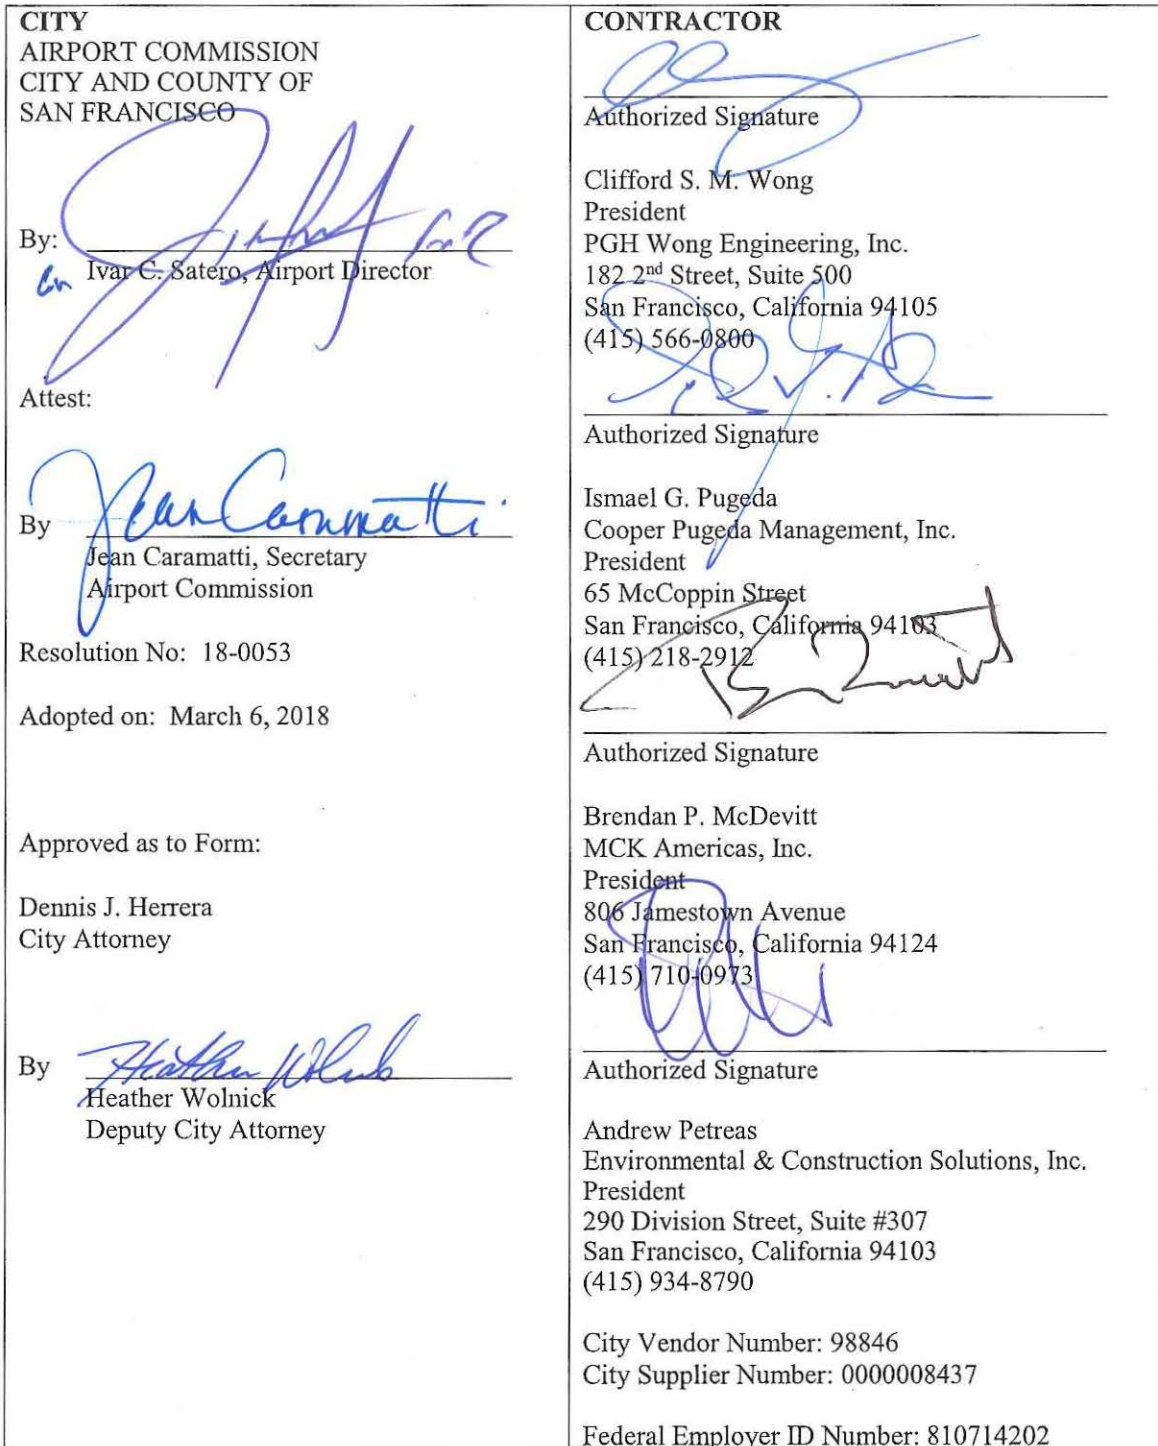 CITY
AIRPORT COMMISSION
CITY AND COUNTY OF
SAN FRANCISCO
By:
Ivar C. Satero, Airport Director
Attest:
Jean Caramatti
By
Jean Caramatti, Secretary
Airport Commission
Resolution No: 18-0053
Adopted on: March 6, 2018
Approved as to Form:
Dennis J. Herrera
City Attorney
By Heather Wolnick
Heather Wolnick
Deputy City Attorney
CONTRACTOR
Authorized Signature
Clifford S. M. Wong
President
PGH Wong Engineering, Inc.
182 2nd Street, Suite 500
San Francisco, California 94105
(415) 566-0800
Authorized Signature
Ismael G. Pugeda
Cooper Pugeda Management, Inc.
President
65 McCoppin Street
San Francisco, California 94103
(415) 218-2912
Authorized Signature
Brendan P. McDevitt
MCK Americas, Inc.
President
806 Jamestown Avenue
San Francisco, California 94124
(415) 710-0973
Authorized Signature
Andrew Petreas
Environmental & Construction Solutions, Inc.
President
290 Division Street, Suite #307
San Francisco, California 94103
(415) 934-8790
City Vendor Number: 98846
City Supplier Number: 0000008437
Federal Employer ID Number: 810714202